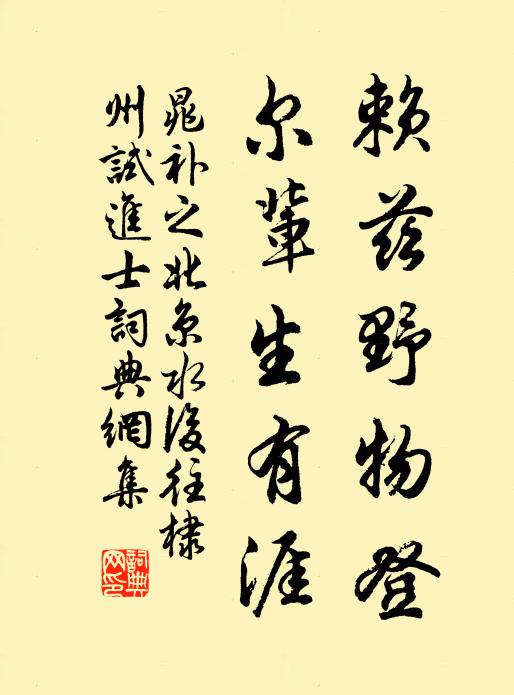 赖兹野物登
尔輩生有涯
晁补之北京水後往棣
州試進士詞典網集
詞典网印